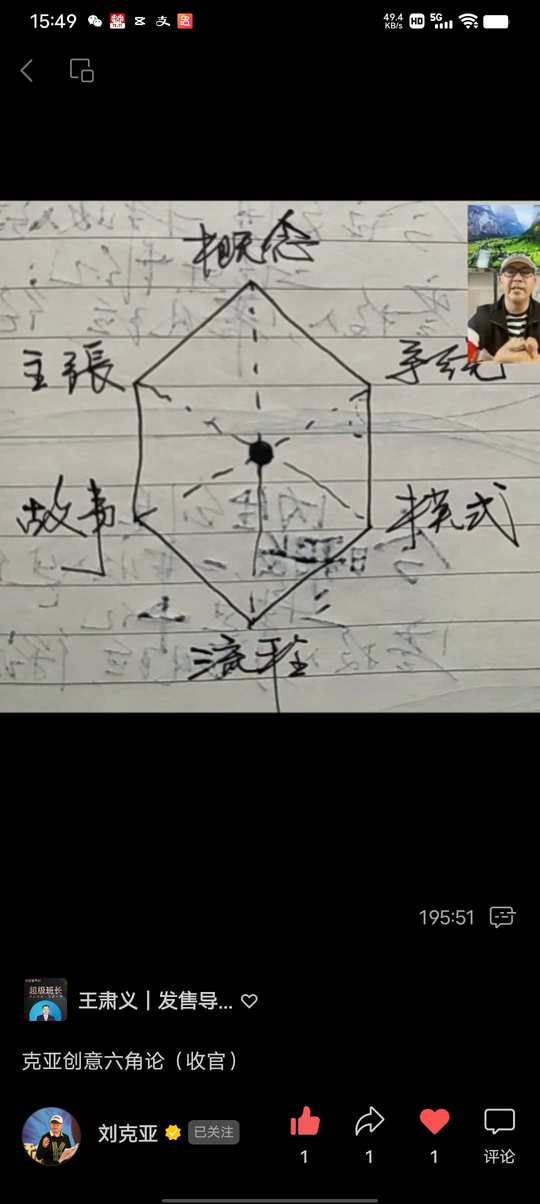 15:49
49.4
KB/s
HD
5G
概念
主張
系统
故事
模式
流程
195:51
超级班长
王肃义｜发售导...
克亚创意六角论（收官）
刘克亚
已关注
1
1
1
评论